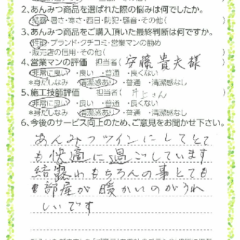 2.あんみつ商品を選ばれた際の悩みは何でしたか。
結露・暑さ・寒さ・西日・防犯・騒音・その他(　)
3.あんみつ商品をご購入頂いた最終判断は何ですか。
性能・ブランド・クチコミ・営業マンの勧め
販売店の信用・その他(　)
4.営業マンの評価　担当者(伊藤貴夫様
非常に良い・良い・普通・良くない
安心感あり・不快感あり・清潔感なし
5.施工技術評価　担当者(井上さん
非常に良い・良い・普通・良くない
安心感あり・不快感あり・清潔感なし
6.今後のサービス向上のため、ご意見をお聞かせ下さい。
あんみつツインにしてとて
も快適に過ごしています
結露はもちろんの事とても
部屋が暖かいのがうれ
しいです